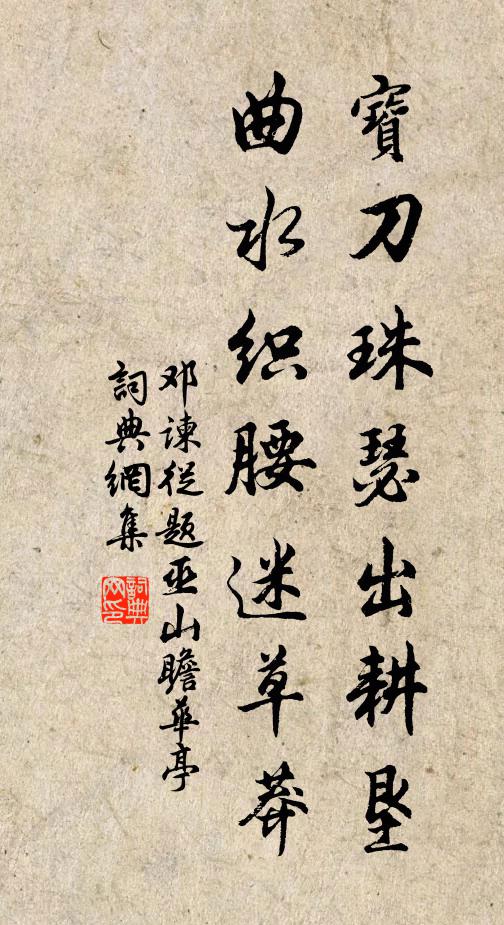 寶刀珠瑟出耕垦
曲水织腰迷草莽
邓谏從题巫山瞻華亭
詞典網集
詞典網印